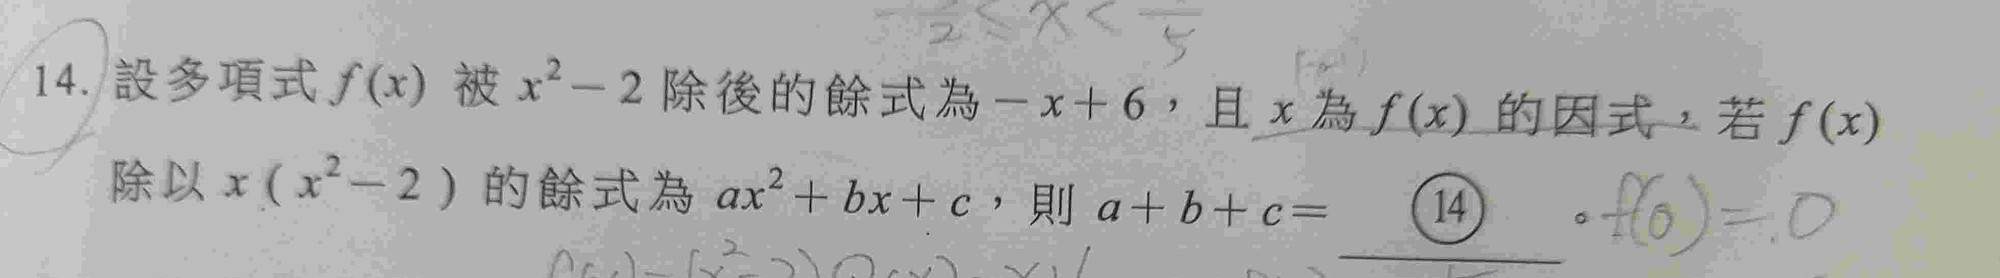 2 < x < 5
14. 設多項式 f(x) 被 x² − 2 除後的餘式為 − x + 6，且 x 為 f(x) 的因式，若 f(x)
除以 x ( x² − 2 ) 的餘式為 ax² + bx + c，則 a + b + c = ⑭ 。f(0) = 0